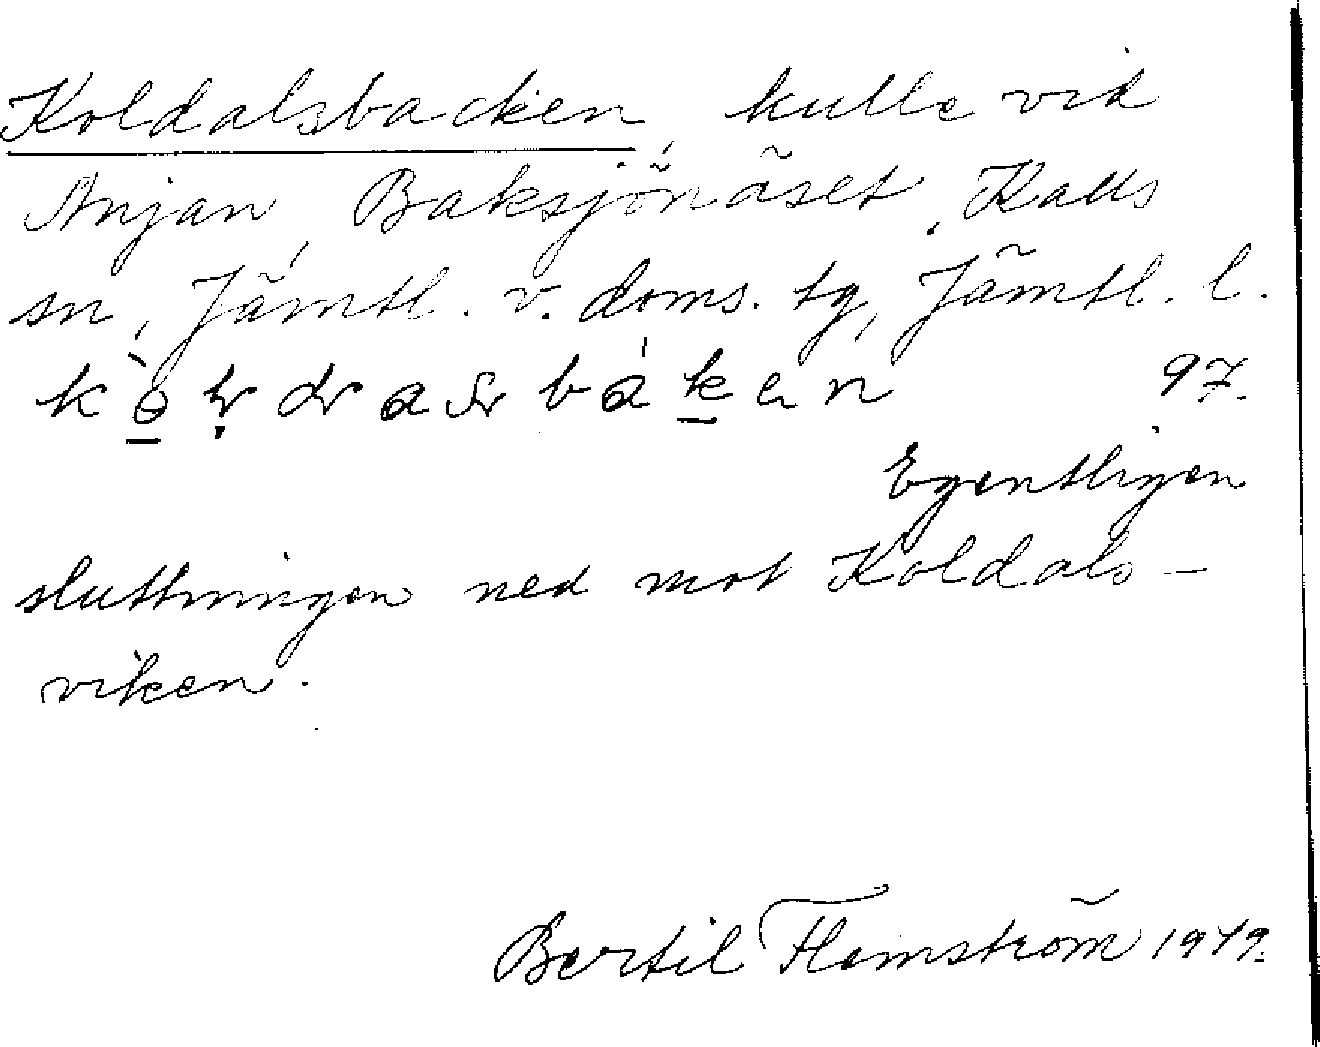 Koldalsbacken, kulle vid
Anjan, Baksjönäset, Kalls
sn, Jämtl. v. doms. tg, Jämtl. l.
97.
Egentligen
sluttningen ned mot Koldals-
viken.
Bertil Flemström 1979.